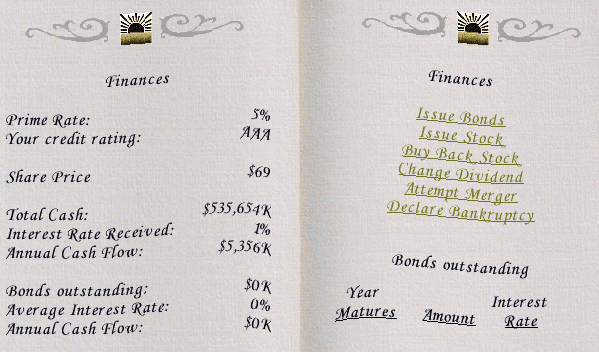 Finances
Prime Rate: 5%
Your credit rating: AAA
Share Price $69
Total Cash: $535,654K
Interest Rate Received: 1%
Annual Cash Flow: $5,356K
Bonds outstanding: $0K
Average Interest Rate: 0%
Annual Cash Flow: $0K
Finances
Issue Bonds
Issue Stock
Buy Back Stock
Change Dividend
Attempt Merger
Declare Bankruptcy
Bonds outstanding
Year Matures
Amount
Interest Rate